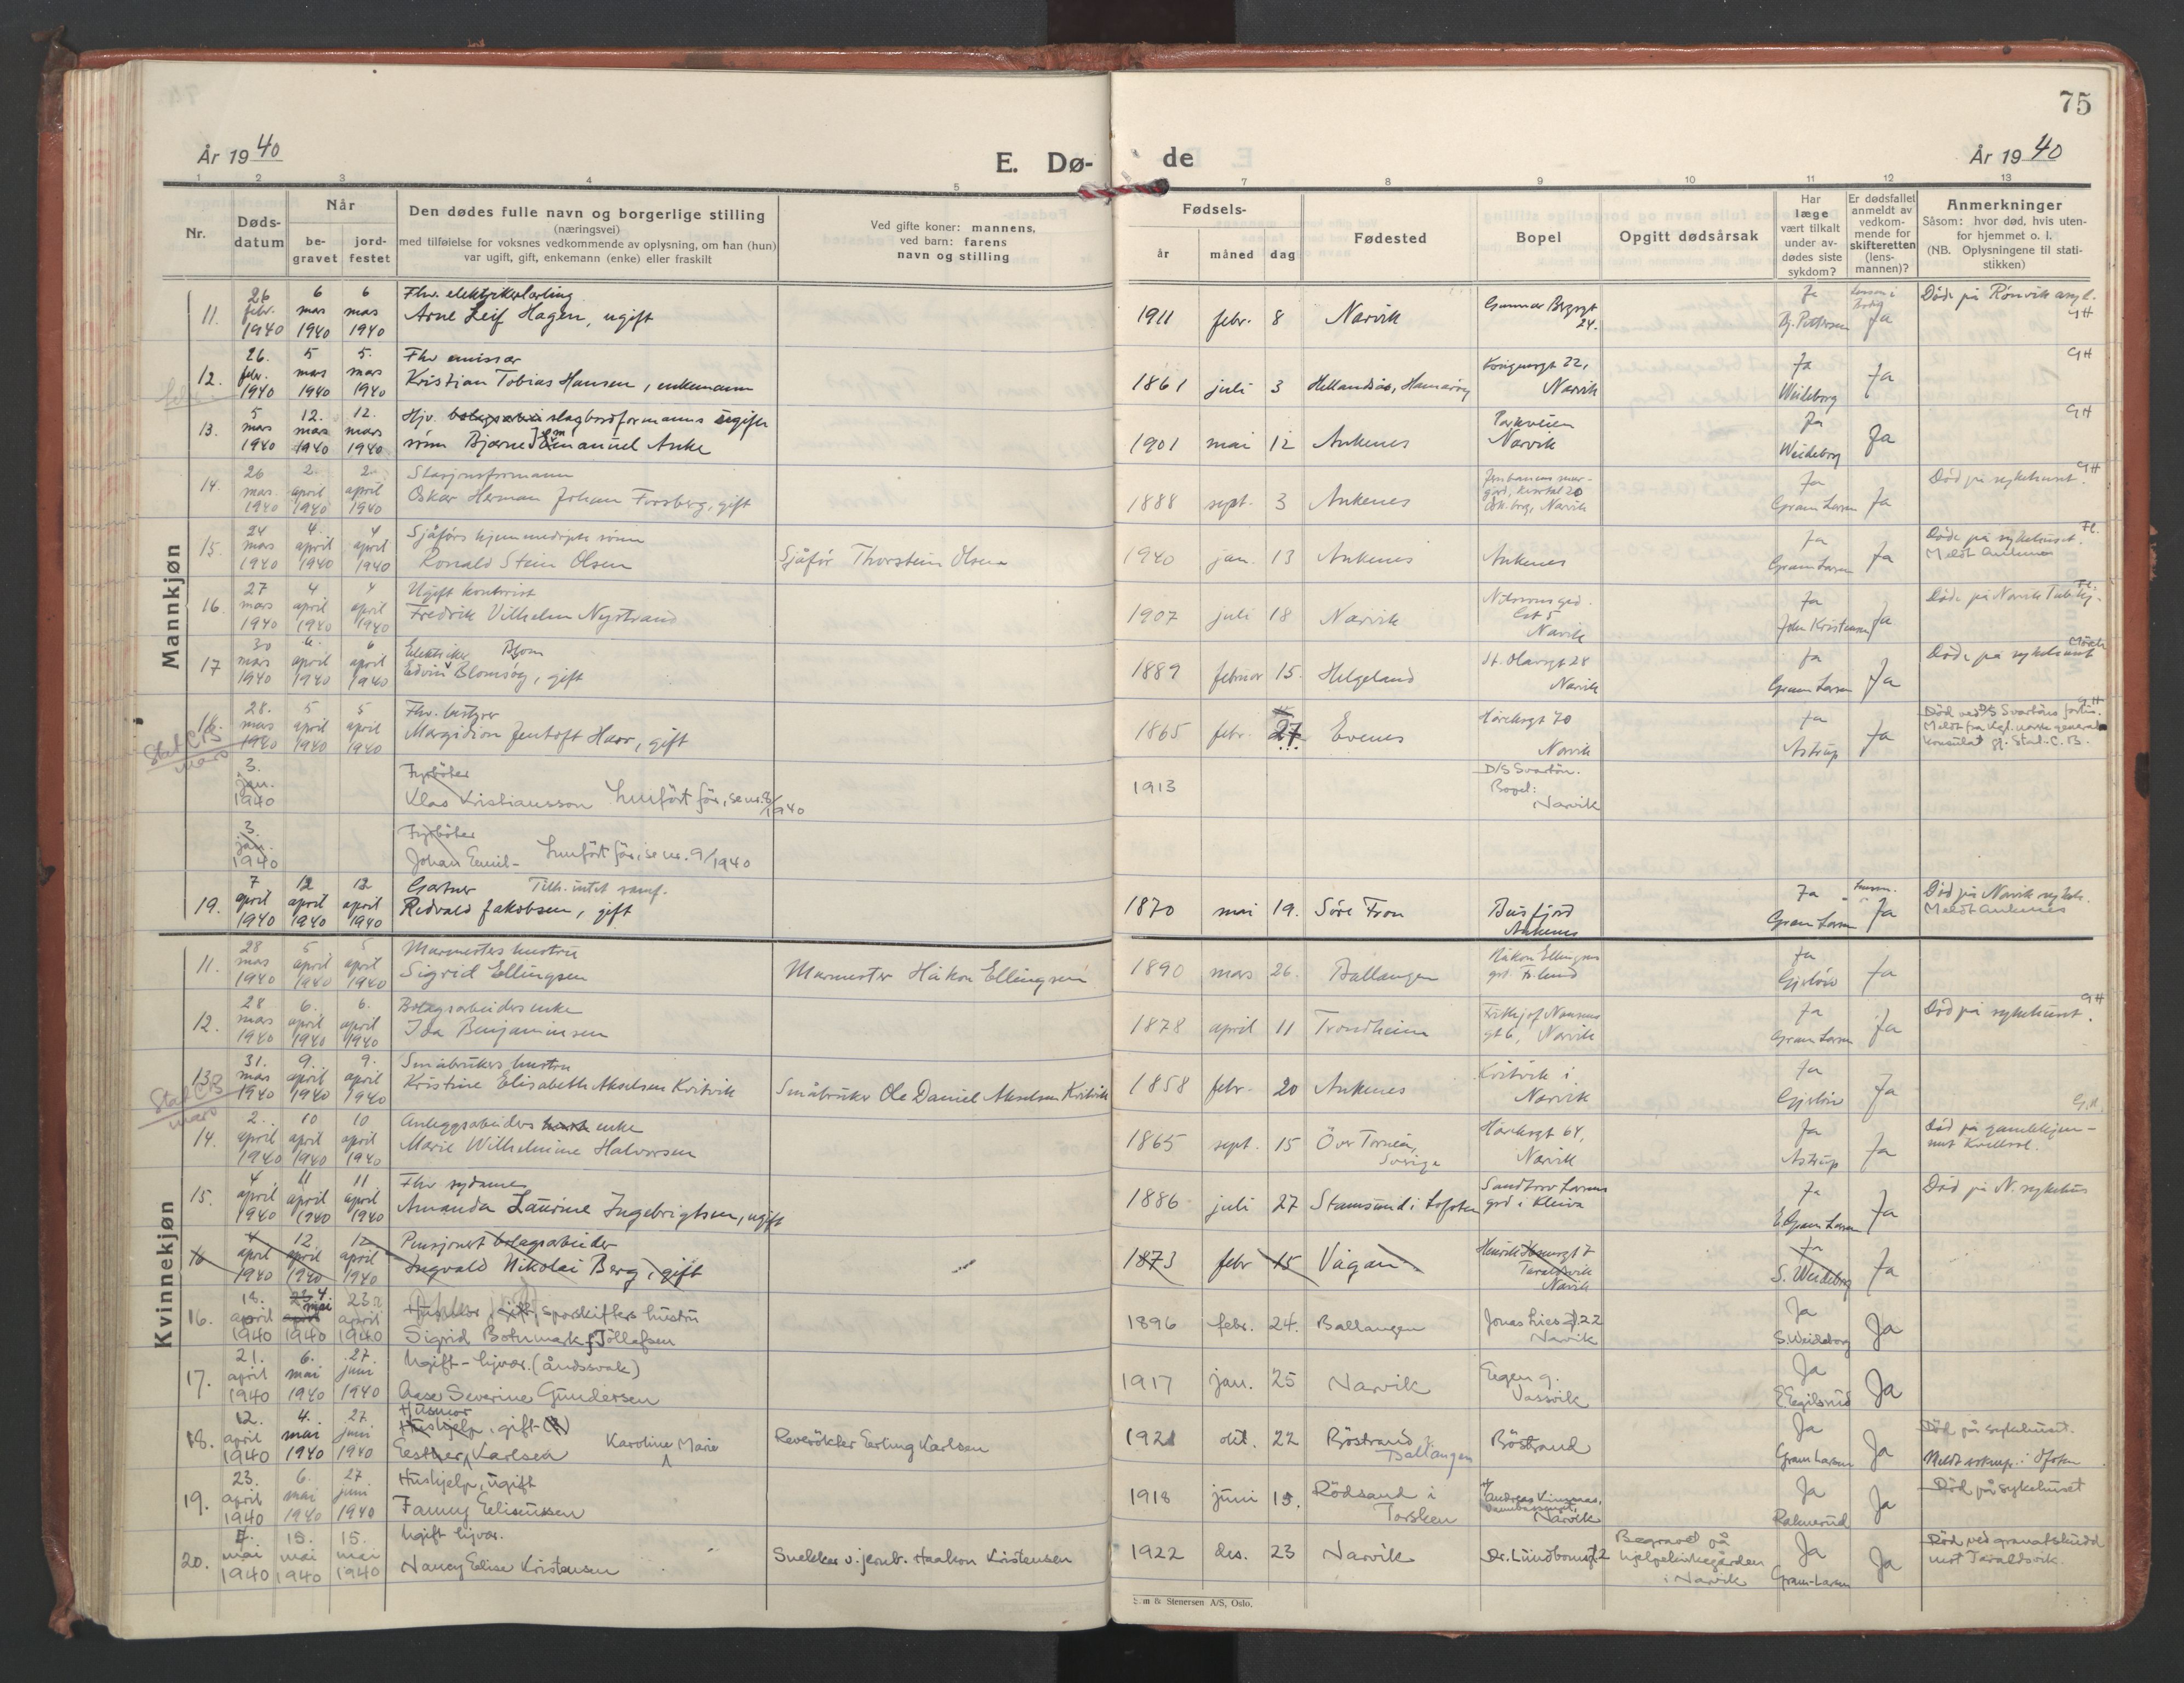 75
År 1940
E. Dø-
de
År 1940
1 2 3 4 5 7 8 9 10 11 12 13
Nr.
Døds-
datum
Når
be-
gravet
jord-
festet
Den dødes fulle navn og borgerlige stilling
(næringsvei)
med tilføielse for voksnes vedkommende av oplysning, om han (hun)
var ugift, gift, enkemann (enke) eller fraskilt
Ved gifte koner: mannens,
ved barn: farens
navn og stilling
Fødsels-
år måned dag
Fødested
Bopel
Opgitt dødsårsak
Har
læge
vært tilkalt
under av-
dødes siste
sykdom?
Er dødsfallet
anmeldt av
vedkom-
mende for
skifteretten
(lens-
mannen)?
Anmerkninger
Såsom: hvor død, hvis uten-
for hjemmet o. l.
(NB. Oplysningene til stati-
stikken)
Mannkjøn
11. 26 febr. 1940 6 mars 1940 6 mars 1940
Fhv. elektrikerlærling
Arne Leif Hagen, ugift
1911 febr. 8 Narvik
24. Ja Ja
Døde på Rønvik asyl.
GH
12. 26. febr. 1940 5 mars 1940 5. mars 1940
Fhv emissær
Kristian Tobias Hansen, enkemann
1861 juli 3 Hamarøy
Kongensgt 22,
Narvik
Ja Weideborg Ja GH
13. 5 mars 1940 12. mars 1940 12. mars 1940
Hjv. slagbordformanns ugifte
sønn Bjarne Emanuel Anke
1901 mai 12 Ankenes
Parkveien
Narvik
Ja Weideborg Ja GH
14. 26 mars 1940 2. april 1940 2. april 1940
Stasjonsformann
Oskar Herman Johan Forsberg, gift
1888 sept. 3 Ankenes
Narvik
Ja Gram Larsen Ja
Død på sykehuset. GH
15. 24 mars 1940 4. april 1940 4 april 1940
Sjåførs hjemmedøpte sønn
Ronald Stein Olsen
Sjåfør Thorstein Olsen
1940 jan. 13 Ankenes Ankenes
Ja Gram Larsen Ja
Døde på sykehuset. Fl.
Meldt Ankenes
16. 27 mars 1940 4 april 1940 4 april 1940
Ugift kontorist
Fredrik Vilhelm Nystrand
1907 juli 18 Narvik
Narvik
Ja John Kristensen Ja
Døde på Narvik Tub.hj.
17 30 mars 1940 6. april 1940 6 april 1940
Elektriker
Edvin Blomsøy, gift
1889 februar 15. Helgeland
St. Olavsgt 28
Narvik
Ja Gram Larsen Ja
Døde på sykehuset
18. 28. mars 1940 5 april 1940 5 april 1940
Fhv. bestyrer
Margidion Jentoft Haar, gift
1865 febr. 27 Evenes
Håreksgt 70
Narvik
Ja Astrup Ja GH
Stat. C.B
mars
Død ved D/S Svartöns forlis.
Meldt fra kgl. norske general-
konsulat gj. Stat. C. B.
3. jan. 1940
Fyrbøter
Klas Kristiansson Innført før, se nr. 8/1940
1913
D/S Svartön.
Bopel:
Narvik
3. jan. 1940
Fyrbøter
Johan Emil- Innført før, se nr. 9/1940
19. 7 april 1940 12 april 1940 12 april 1940
Gartner Tilh. intet samf.
Redvald Jakobsen, gift
1870 mai 19. Søre Fron
Beisfjord
Ankenes
Ja Gram Larsen Ja
Død på Narvik sykeh.
Meldt Ankenes
Kvinnekjøn
11. 28 mars 1940 5 april 1940 5 april 1940
Murmesters hustru
Sigrid Ellingsen
Murmester Håkon Ellingsen
1890 mars 26. Ballangen
Håkon Ellingsens
Ja Gjerløw Ja
12. 28 mars 1940 6. april 1940 6. april 1940
Bolagsarbeiders enke
Ida Benjaminsen
1878 april 11 Trondheim
Fritjof Nansens
gt 6, Narvik
Ja Gram Larsen Ja
Død på sykehuset. GH
13. 31. mars 1940 9. april 1940 9. april 1940
Stat. C.B
mars
Småbrukers hustru
Kristine Elisabeth Akselsen Kvitvik
Småbruker Ole Daniel Akselsen Kvitvik
1858 febr. 20 Ankenes
Kvitvik i
Narvik
Ja Gjerløw Ja
G.H.
14. 2. april 1940 10 april 1940 10 april 1940
Anleggsarbeiders enke
Marie Wilhelmine Halvorsen
1865 sept. 15 Över Torneå,
Sverige
Håreksgt 64,
Narvik
Ja Astrup Ja
Død på gamlehjem-
met Kveldsol.
15. 4 april 1940 11 april 1940 11 april 1940
Fhv sydame
Amanda Laurine Ingebrigtsen, ugift
1886 juli 27 Stamsund i Lofoten
grd i Kleiva
Ja E Gram Larsen Ja
Død på N. sykehus
16 4 april 1940 12 april 1940 12 april 1940
Pensjonert bolagsarbeider
Ingvald Nikolai Berg, gift
1873 febr 15 Vågan
Henrik Ibsensgt 7
Taraldsvik
Narvik
Ja S. Weideborg Ja
16. 18. april 1940 4 mai 1940 23. april 1940
sporskifters hustru
Sigrid Botnmark f. Tollefsen
1896 febr. 24. Ballangen
Jonas Lies gt. 22
Narvik
Ja S. Weideborg Ja
17. 21. april 1940 6. mai 1940 27. juni 1940
Ugift - hjvær. (åndssvak)
Aase Severine Gundersen
1917 jan. 25 Narvik
Eegen g.
Vassvik
Ja E. Egilsrud Ja
18. 12. april 1940 4. mai 1940 27. juni 1940
Husmor
Hushjelp, gift
Eesther Karlsen Karoline Marie
Reverøkter Erling Karlsen
1921 okt. 22 Røstrand i
Ballangen
Røstrand
Ja Gram Larsen Ja
Død på sykehuset.
Meldt soknep. i Ofoten
19. 23. april 1940 6. mai 1940 27 juni 1940
Hushjelp, ugift
Fanny Eliseussen
1918 juni 15. Rödsand i
Torsken
Narvik
Ja Ja
Død på sykehuset
20. 7. mai 1940 15. mai 1940 15. mai 1940
Ugift hjvær.
Nancy Elise Kristensen
Snekker v. jernb. Haakon Kristensen
1922 des. 23 Narvik
Dr. Lundbomsgt 2
Begravet på
hjelpekirkegården
i Narvik
Ja Gram-Larsen Ja
Död ved granatskudd
mot Taraldsvik.
Sem & Stenersen A/S, Oslo.